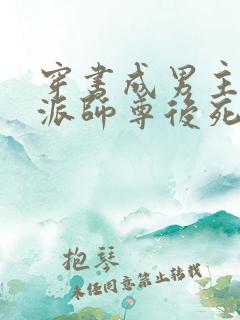 穿书成男主
派师尊後死
抱琴
未经同意禁止转载